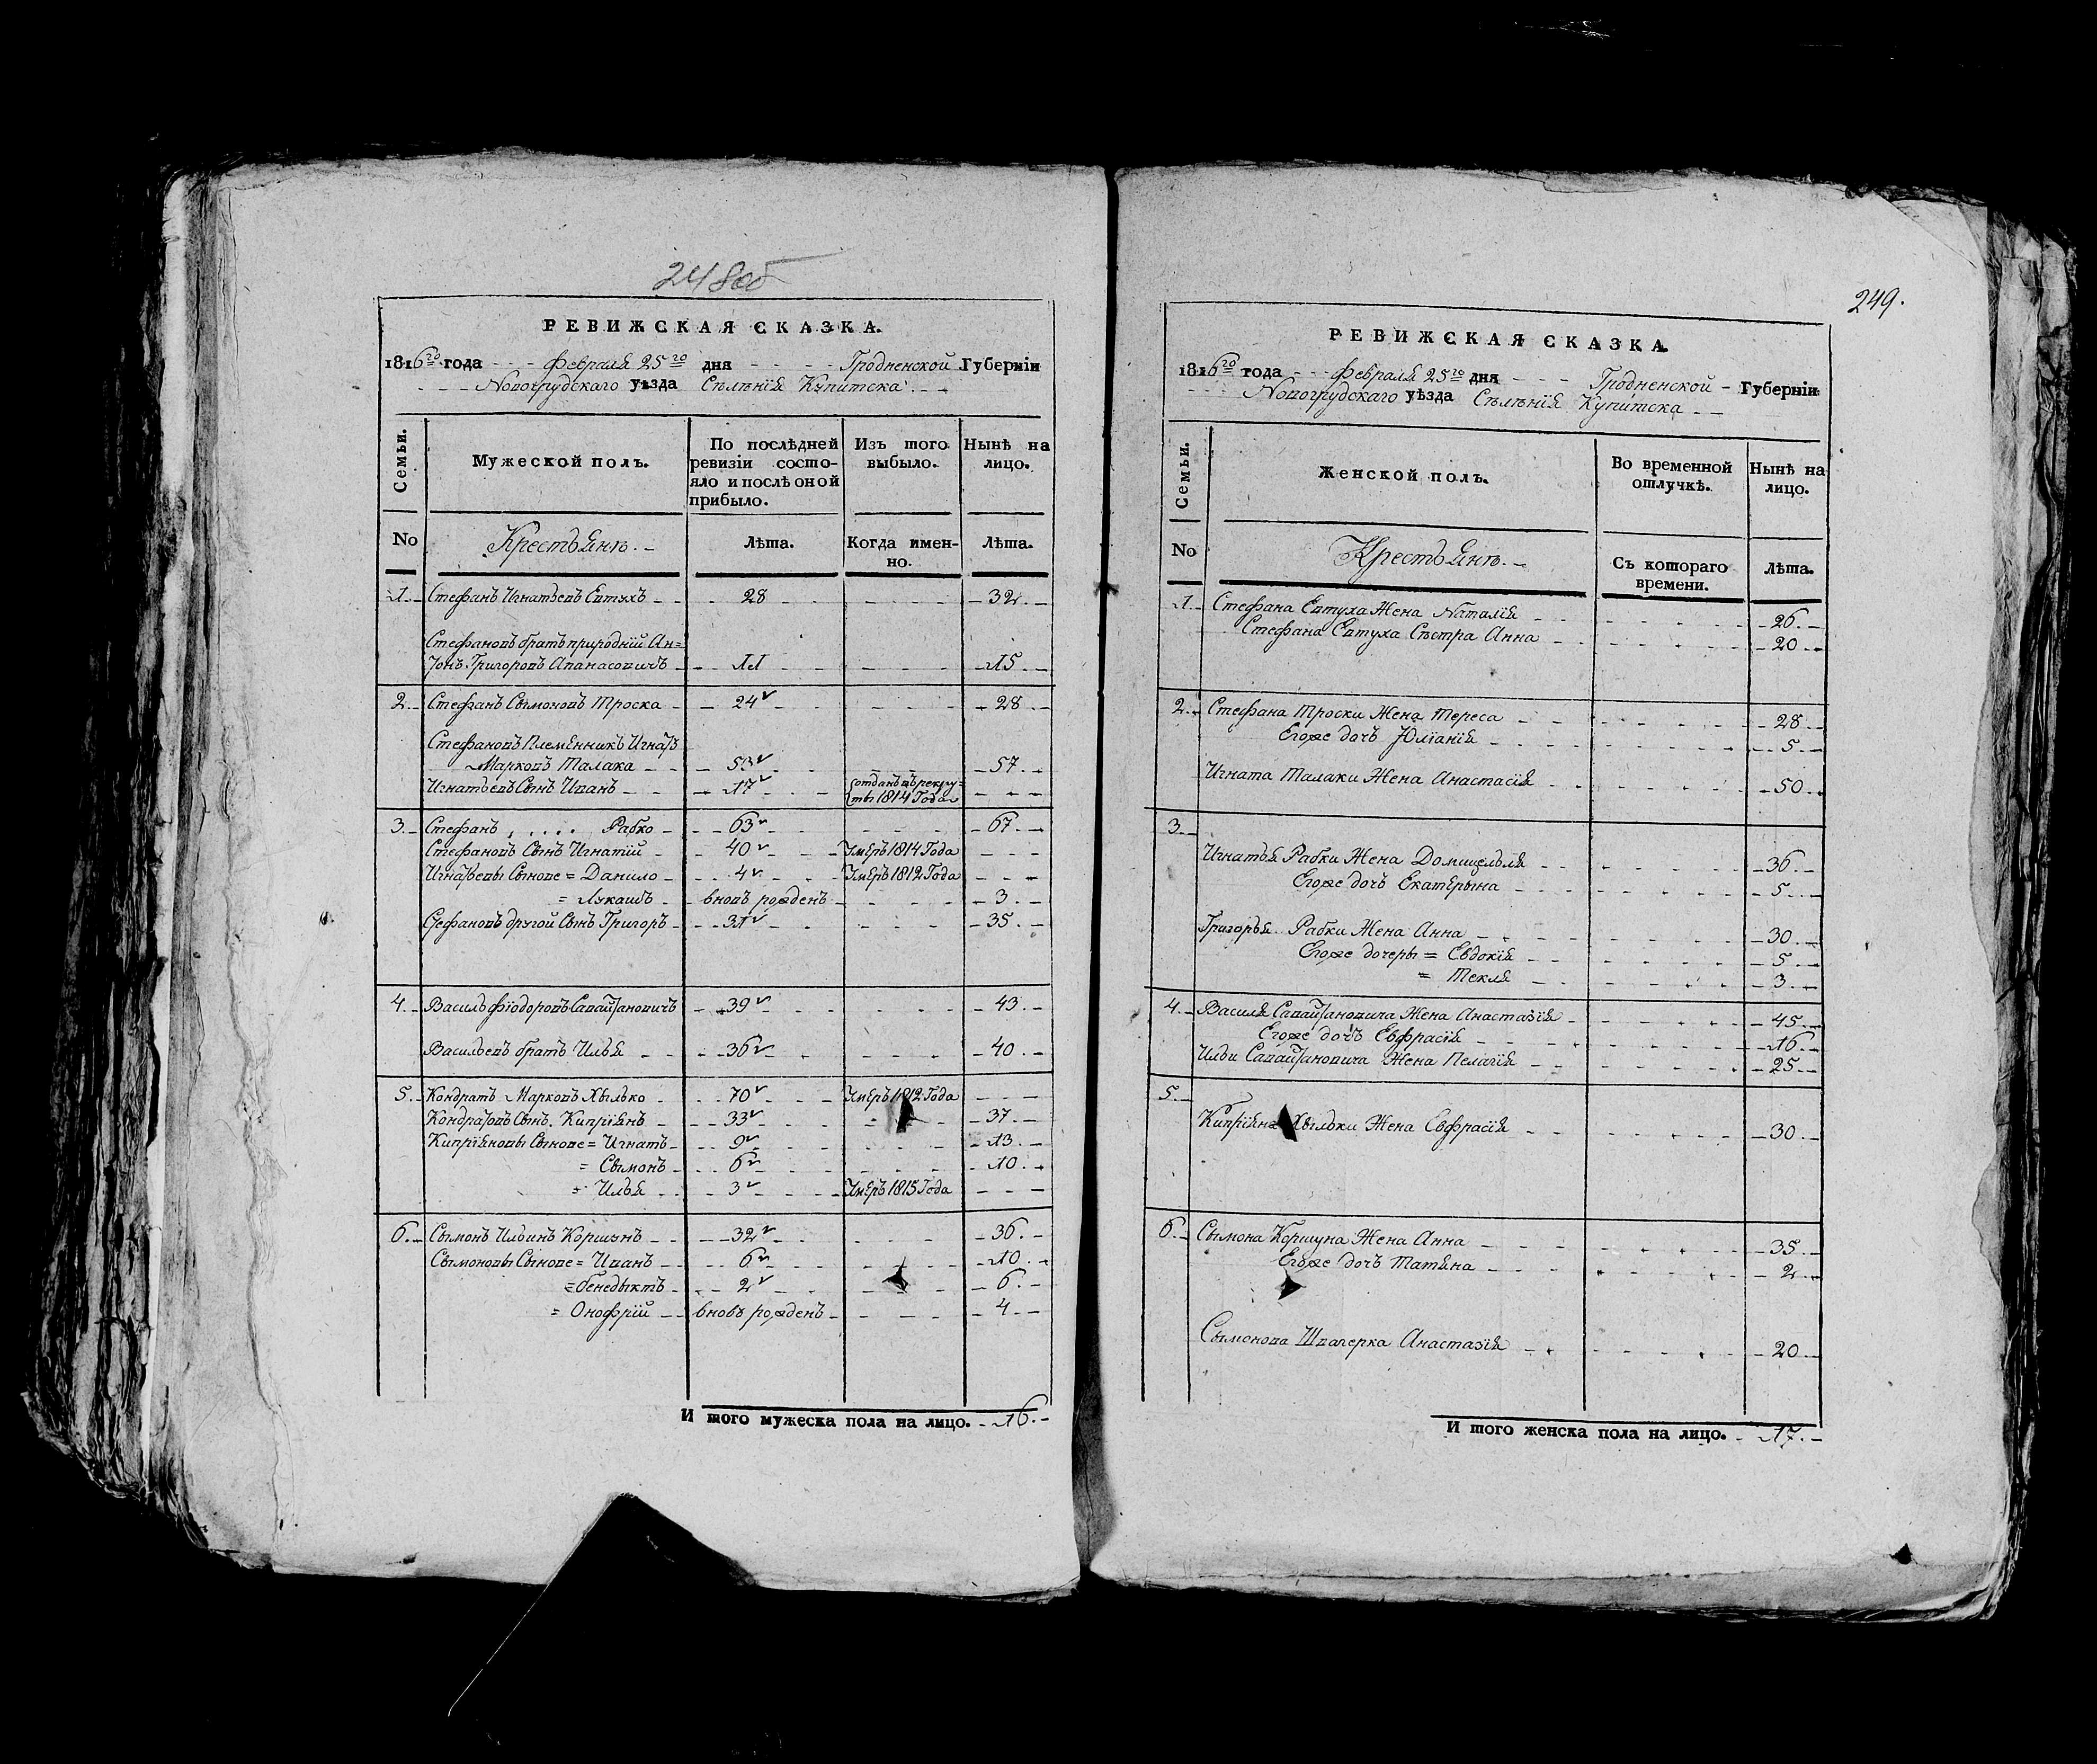 248об
РЕВИЖСКАЯ СКАЗКА.
1816го года - - - Февраля 25го дня - - - Гродненской Губерніи
- - - Новогрудскаго уѣзда Сѣлѣнія Купитска - - -
Семьи.
Мужеской полъ.
По послѣдней ревизіи состо-
яло и послѣ оной
прибыло.
Изъ того
выбыло.
Нынѣ на
лицо.
No
Крестьянъ. -
Лѣта.
Когда имен-
но.
Лѣта.
1. Стефанъ Игнатьевъ Евтухъ - - 28 - 32. -
Стефановъ братъ природній Ан=
тонъ Григоровъ Апанасовичъ - - 11 - - 15. -
2. Стефанъ Сымоновъ Троска - - 24 - - 28 -
Стефановъ Племянникъ Игнатъ
Марковъ Талака - - 53 - - 57. -
Игнатьевъ Сынъ Иванъ - - 17 - - отданъ въ рекру=
ты 1814 Года - - -
3. Стефанъ . . . . Рабко - - 63 - - 67. -
Стефановъ Сынъ Игнатій - - 40 - - Умеръ 1814 Года - - -
Игнатьевы Сынове = Данило - - 4 - - Умеръ 1812 Года - - -
= Лукашъ - - вновь рожденъ - - 3. -
Стефановъ другой Сынъ Григоръ - - 31 - - 35. -
4. Василь Фіодоровъ Савайтановичъ - - 39 - - 43. -
Васильевъ братъ Илья - - 36 - - 40. -
5. Кондратъ Марковъ Хвилько - - 70 - - Умеръ 1812 Года - - -
Кондратовъ Сынъ. Кипріянъ - - 33 - - 37. -
Кипріяновы Сынове = Игнатъ - - 9 - - 13. -
= Сымонъ - - 6 - - 10. -
= Илья - - 3 - - Умеръ 1815 Года - - -
6. Сымонъ Ильинъ Коршунъ - - 32 - - 36. -
Сымоновы Сынове = Иванъ - - 6 - - 10. -
= бенедыктъ - - 2 - - 6. -
= Онофрій - - вновь рожденъ - - 4. -
И того мужеска пола на лицо. - 16. -
249.
РЕВИЖСКАЯ СКАЗКА.
1816го года - - - Февраля 25го дня - - - Гродненской - Губерніи
- - - Новогрудскаго уѣзда Сѣлѣнія Купитска - -
Семьи.
Женской полъ.
Во временной
отлучкѣ.
Нынѣ на
лицо.
No
Крестьянъ. -
Съ котораго
времени.
Лѣта.
1. Стефана Евтуха Жена Наталія - - 26. -
Стефана Евтуха Сѣстра Анна - - 20. -
2. Стефана Троски Жена Тереса - - 28. -
Егоже дочь Юліанія - - 5. -
Игната Талаки Жена Анастасія - - 50. -
3. -
Игнатья Рабки Жена Домицеля - - 36. -
Егоже дочь Екатерына - - 5. -
Григорья Рабки Жена Анна - - 30. -
Егоже дочеры = Евдокія - - 5. -
= Текля - - 3. -
4. Василя Савайтановича Жена Анастазія - - 45. -
Егоже дочъ Евфрасія - - 16. -
Ильи Савайтановича Жена Пелагія - - 25. -
5. -
Кипріяна Хвильки Жена Евфрасія - - 30. -
6. Сымона Коршуна Жена Анна - - 35. -
Егоже дочъ Татяна - - 2. -
Сымонова Швагерка Анастазія - - 20. -
И того женска пола на лицо. - 17. -